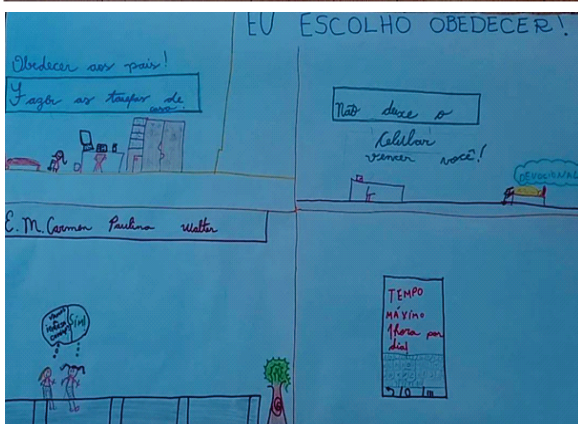 EU ESCOLHO OBEDECER!
Obedecer aos pais!
Fazer as tarefas de
casa.
Não deixe o
Celular
vencer você!
DEVOCIONAL
E. M. Carmen Paulina Walter
Sim!
TEMPO
MÁXIMO
1 hora por
dia!